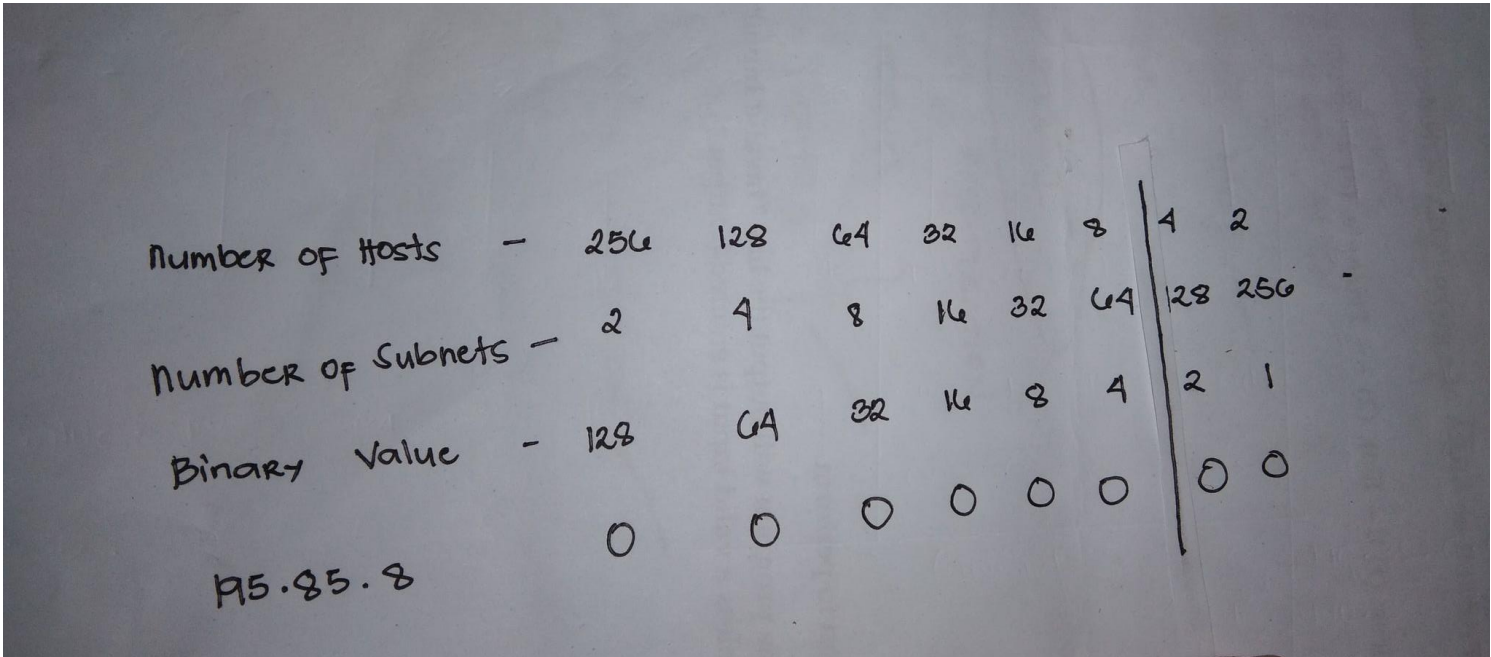 Number of Hosts - 256 128 64 32 16 8 4 2
Number of Subnets - 2 4 8 16 32 64 128 256
Binary Value - 128 64 32 16 8 4 2 1
195.85.8 0 0 0 0 0 0 0 0